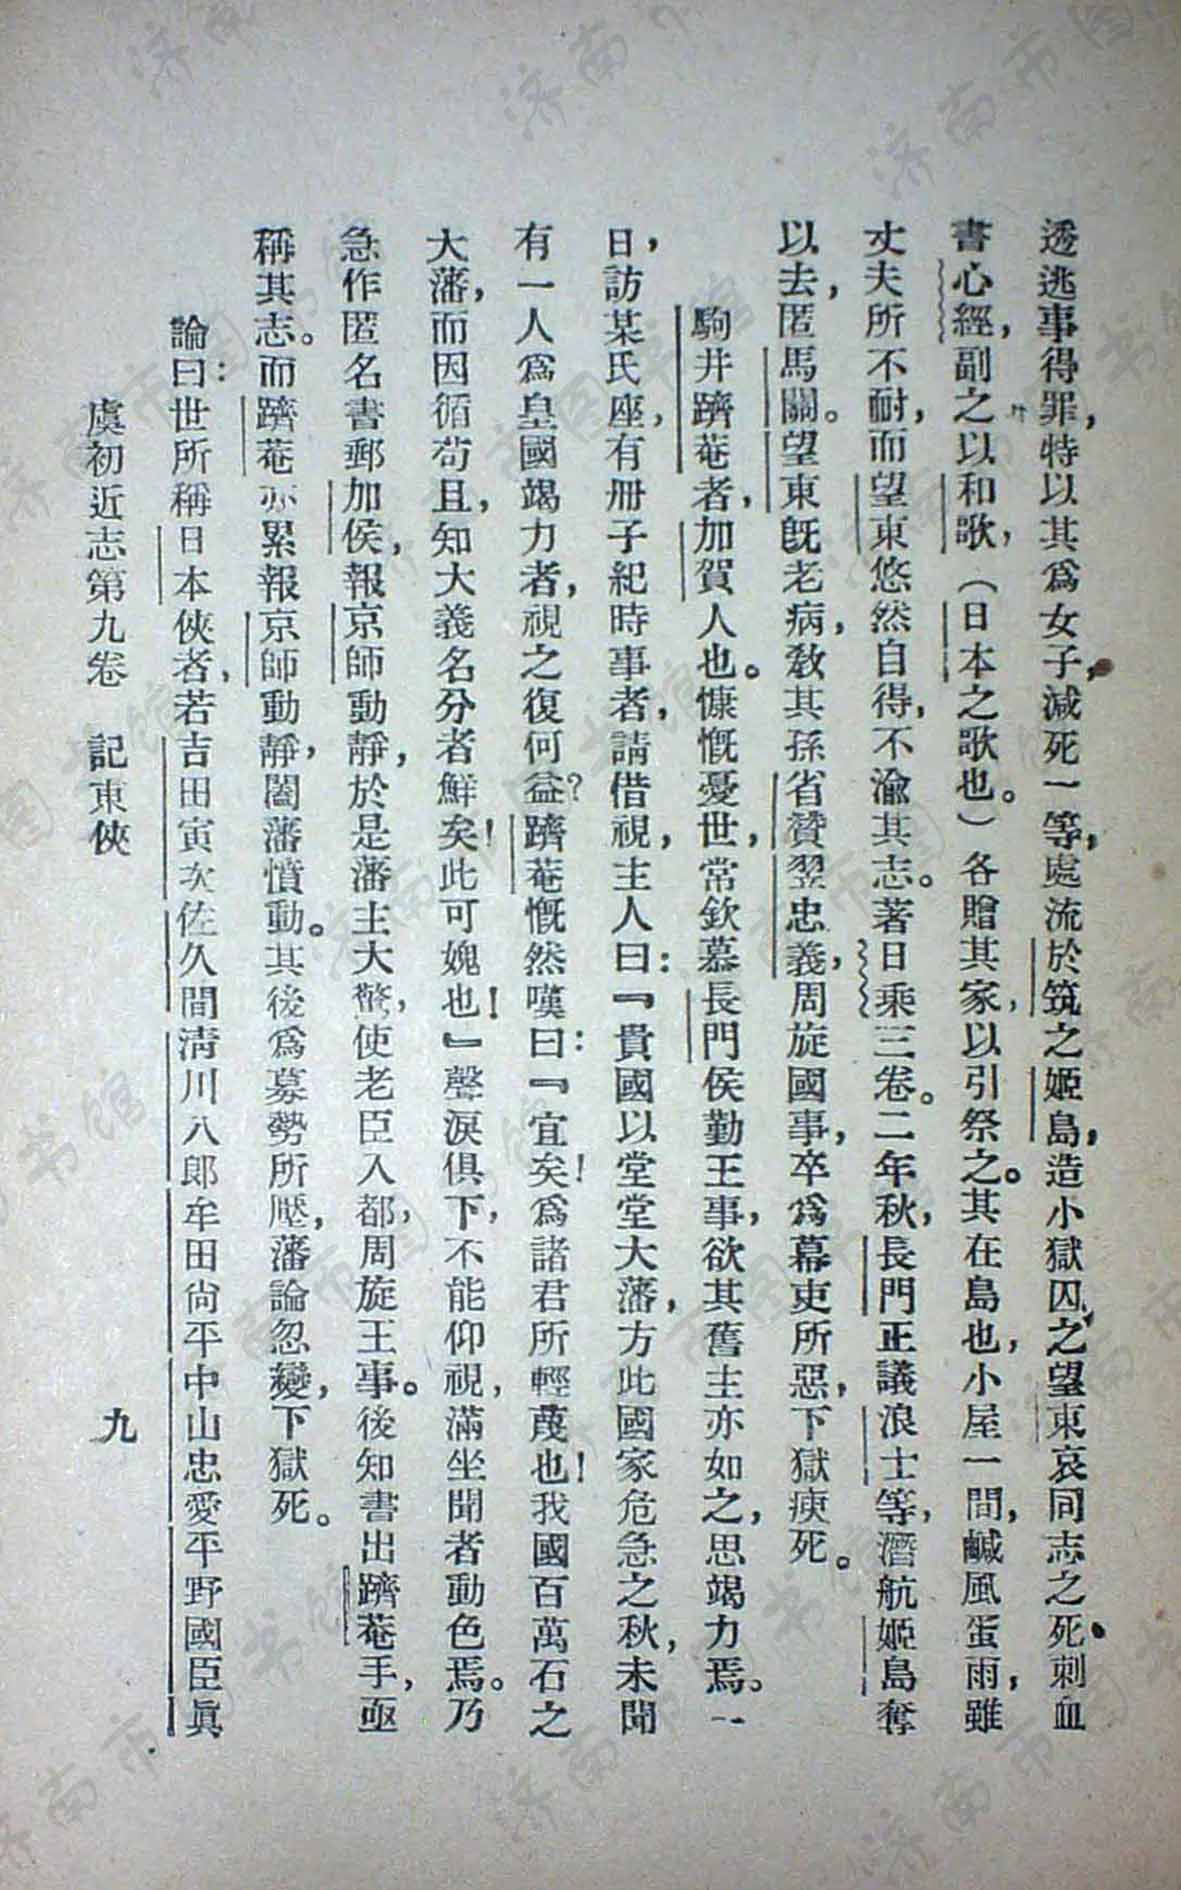 透逃事得罪，特以其爲女子，減死一等，處流於筑之姬島，造小獄囚之望東哀同志之死，刺血
書心經，副之以和歌，（日本之歌也。）各贈其家，以引祭之。其在島也，小屋一間，鹹風蛋雨，雖
丈夫所不耐，而望東悠然自得，不渝其志。著日乘三卷。二年秋，長門正議浪士等，潛航姬島奪
以去，匿馬關。望東旣老病，敎其孫省贊翌忠義，周旋國事，卒爲幕吏所惡，下獄瘐死。
駒井躋菴者，加賀人也。慷慨憂世，常欽慕長門侯勤王事，欲其舊主亦如之，思竭力焉。一
日，訪某氏座，有册子紀時事者，請借視，主人曰：『貴國以堂堂大藩，方此國家危急之秋，未聞
有一人爲皇國竭力者，視之復何益？躋菴慨然嘆曰：『宜矣！爲諸君所輕蔑也！我國百萬石之
大藩，而因循苟且，知大義名分者鮮矣！此可媿也！』聲淚俱下，不能仰視，滿坐聞者動色焉。乃
急作匿名書郵加侯，報京師動靜，於是藩主大驚，使老臣入都，周旋王事。後知書出躋菴手，亟
稱其志。而躋菴亦累報京師動靜，闔藩憤動。其後爲幕勢所壓，藩論忽變，下獄死。
論曰：世所稱日本俠者，若吉田寅次佐久間淸川八郎牟田尙平中山忠愛平野國臣眞
虞初近志第九卷　記東俠　九
济南市图书馆